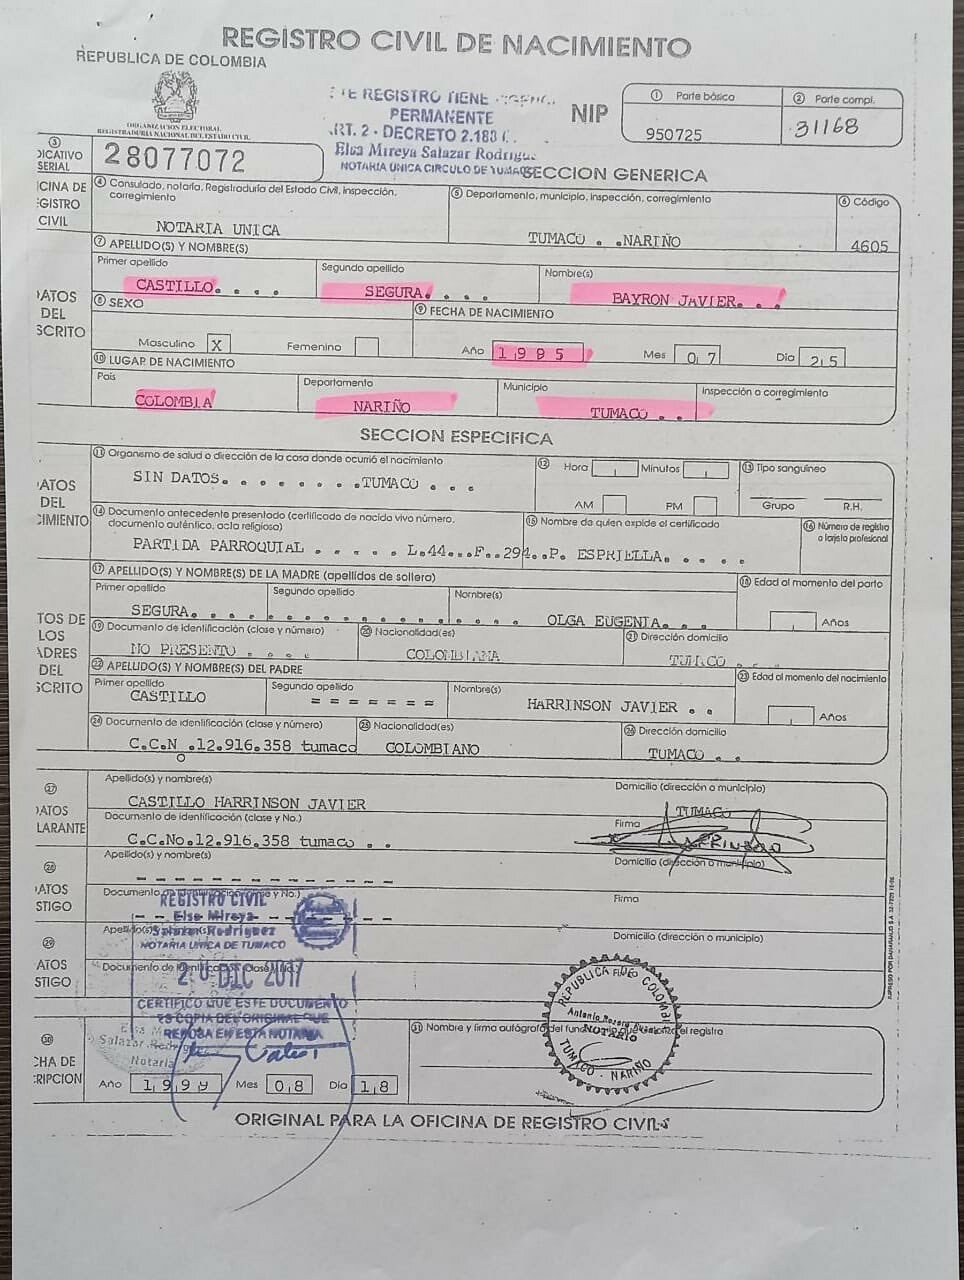 REGISTRO CIVIL DE NACIMIENTO
REPUBLICA DE COLOMBIA
ORGANIZACION ELECTORAL
REGISTRADURIA NACIONAL DEL ESTADO CIVIL
TE REGISTRO TIENE
PERMANENTE
RT. 2 - DECRETO 2.188
Elsa Mireya Salazar Rodrigue
NOTARIA UNICA CIRCULO DE TUMACO
NIP
① Parte básica
950725
② Parte compl.
31168
③
DICATIVO
SERIAL
28077072
SECCION GENERICA
ICINA DE
EGISTRO
CIVIL
④ Consulado, notaría, Registraduría del Estado Civil, inspección, corregimiento
NOTARIA UNICA
⑤ Departamento, municipio, inspección, corregimiento
TUMACO . .NARIÑO
⑥ Código
4605
DATOS
DEL
SCRITO
⑦ APELLIDO(S) Y NOMBRE(S)
Primer apellido
CASTILLO. . . .
Segundo apellido
SEGURA. . . .
Nombre(s)
BAYRON JAVIER. . .
⑧ SEXO
Masculino X Femenino
⑨ FECHA DE NACIMIENTO
Año 1 9 9 5 Mes 0 7 Dia 2 5
⑩ LUGAR DE NACIMIENTO
País
COLOMBIA
Departamento
NARIÑO
Municipio
TUMACO . .
Inspección o corregimiento
SECCION ESPECIFICA
DATOS
DEL
CIMIENTO
⑪ Organismo de salud o dirección de la casa donde ocurrió el nacimiento
SIN DATOS. . . . . . . .TUMACO . . .
⑫ Hora Minutos
AM PM
⑬ Tipo sanguíneo
Grupo R.H.
⑭ Documento antecedente presentado (certificado de nacido vivo número, documento auténtico, acta religiosa)
PARTIDA PARROQUIAL . . . . . L.44...F..294..P. ESPRIELLA. . . . .
⑮ Nombre de quien expide el certificado
⑯ Número de registro o tarjeta profesional
TOS DE
LOS
ADRES
DEL
SCRITO
⑰ APELLIDO(S) Y NOMBRE(S) DE LA MADRE (apellidos de soltera)
Primer apellido
SEGURA. . . . .
Segundo apellido
Nombre(s)
OLGA EUGENIA. . .
⑱ Edad al momento del parto
Años
⑲ Documento de identificación (clase y número)
NO PRESENTO . . . .
⑳ Nacionalidad(es)
COLOMBIANA
㉑ Dirección domicilio
TUMACO . .
㉒ APELLIDO(S) Y NOMBRE(S) DEL PADRE
Primer apellido
CASTILLO
Segundo apellido
= = = = = = =
Nombre(s)
HARRINSON JAVIER . .
㉓ Edad al momento del nacimiento
Años
㉔ Documento de identificación (clase y número)
C.C.No.12.916.358 tumaco
㉕ Nacionalidad(es)
COLOMBIANO
㉖ Dirección domicilio
TUMACO . .
㉗
DATOS
LARANTE
Apellido(s) y nombre(s)
CASTILLO HARRINSON JAVIER
Domicilio (dirección o municipio)
TUMACO
Documento de identificación (clase y No.)
C.C.No.12.916.358 tumaco . .
Firma
㉘
DATOS
STIGO
Apellido(s) y nombre(s)
- - - - - - - - - - - - -
Domicilio (dirección o municipio)
Documento de identificación (clase y No.)
Firma
REGISTRO CIVIL
Elsa Mireya
Salazar Rodriguez
NOTARIA UNICA DE TUMACO
20 DIC 2017
CERTIFICO QUE ESTE DOCUMENTO
ES COPIA DEL ORIGINAL QUE
REPOSA EN ESTA NOTARIA
㉙
DATOS
STIGO
Apellido(s)
Domicilio (dirección o municipio)
Documento de identificación (clase y No.)
REPUBLICA DE COLOMBIA
NOTARIO
TUMACO - NARIÑO
㉚
CHA DE
CRIPCION
Salazar
Notaria
Año 1 9 9 9 Mes 0 8 Dia 1 8
㉛ Nombre y firma autógrafa del funcionario que autoriza el registro
ORIGINAL PARA LA OFICINA DE REGISTRO CIVIL